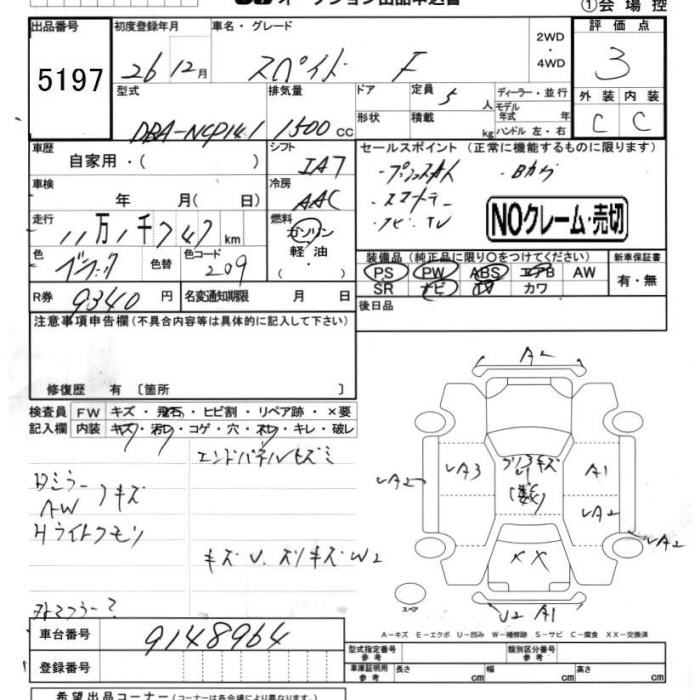 オークション出品申込書
①会場控
出品番号 初度登録年月 車名・グレード 評価点
5197
26 12月 スペイド F 2WD ・ 4WD 3
型式 排気量 ドア 定員 5 人 ディーラー・並行
モデル年式 年
外装 内装
DBA-NCP141 1500 cc 形状 積載 kg ハンドル 左・右 C C
車歴 シフト セールスポイント (正常に機能するものに限ります)
自家用・( ) IA7
・プッシュスタート ・Bカメ
車検 冷房
年 月( 日) AAC
・スマートキー
・ナビ・TV
NOクレーム・売切
走行 燃料
11万1千747 km ガソリン
軽油
・
色 色替 色コード
ブラック 209
装備品 (純正品に限り○をつけてください) 新車保証書
PS PW ABS エアB AW 有・無
SR ナビ TV カワ
R券 9340 円 名変通知期限 月 日
後日品
注意事項申告欄(不具合内容等は具体的に記入して下さい)
修復歴 有 [箇所 ]
検査員 FW キズ・飛石・ヒビ割・リペア跡・×要
記入欄 内装 キズ・汚れ・コゲ・穴・スレ・キレ・破レ
エンドパネルキズミ
Dミラー
AW キズ
Hライトクモリ
キズV.スリキズW2
A2
A2 A3 A1
A2
A2
XX
U2 A1
スペア
A-キズ E-エクボ U-凹み W-補修跡 S-サビ C-腐食 XX-交換済
車台番号 9148964
登録番号
型式指定番号 参考 類別区分番号 参考
車庫証明用 参考 長さ cm 幅 cm 高さ cm
希望出品コーナー(コーナーは各会場により異なります。)